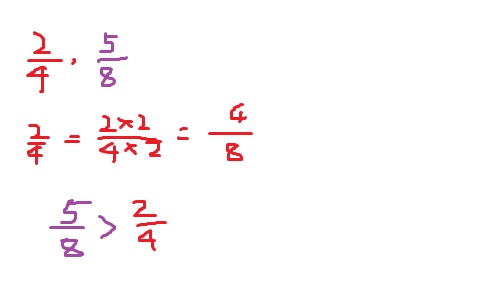 2/4 . 5/8
2/4 = 2×2/4×2 = 4/8
5/8 > 2/4